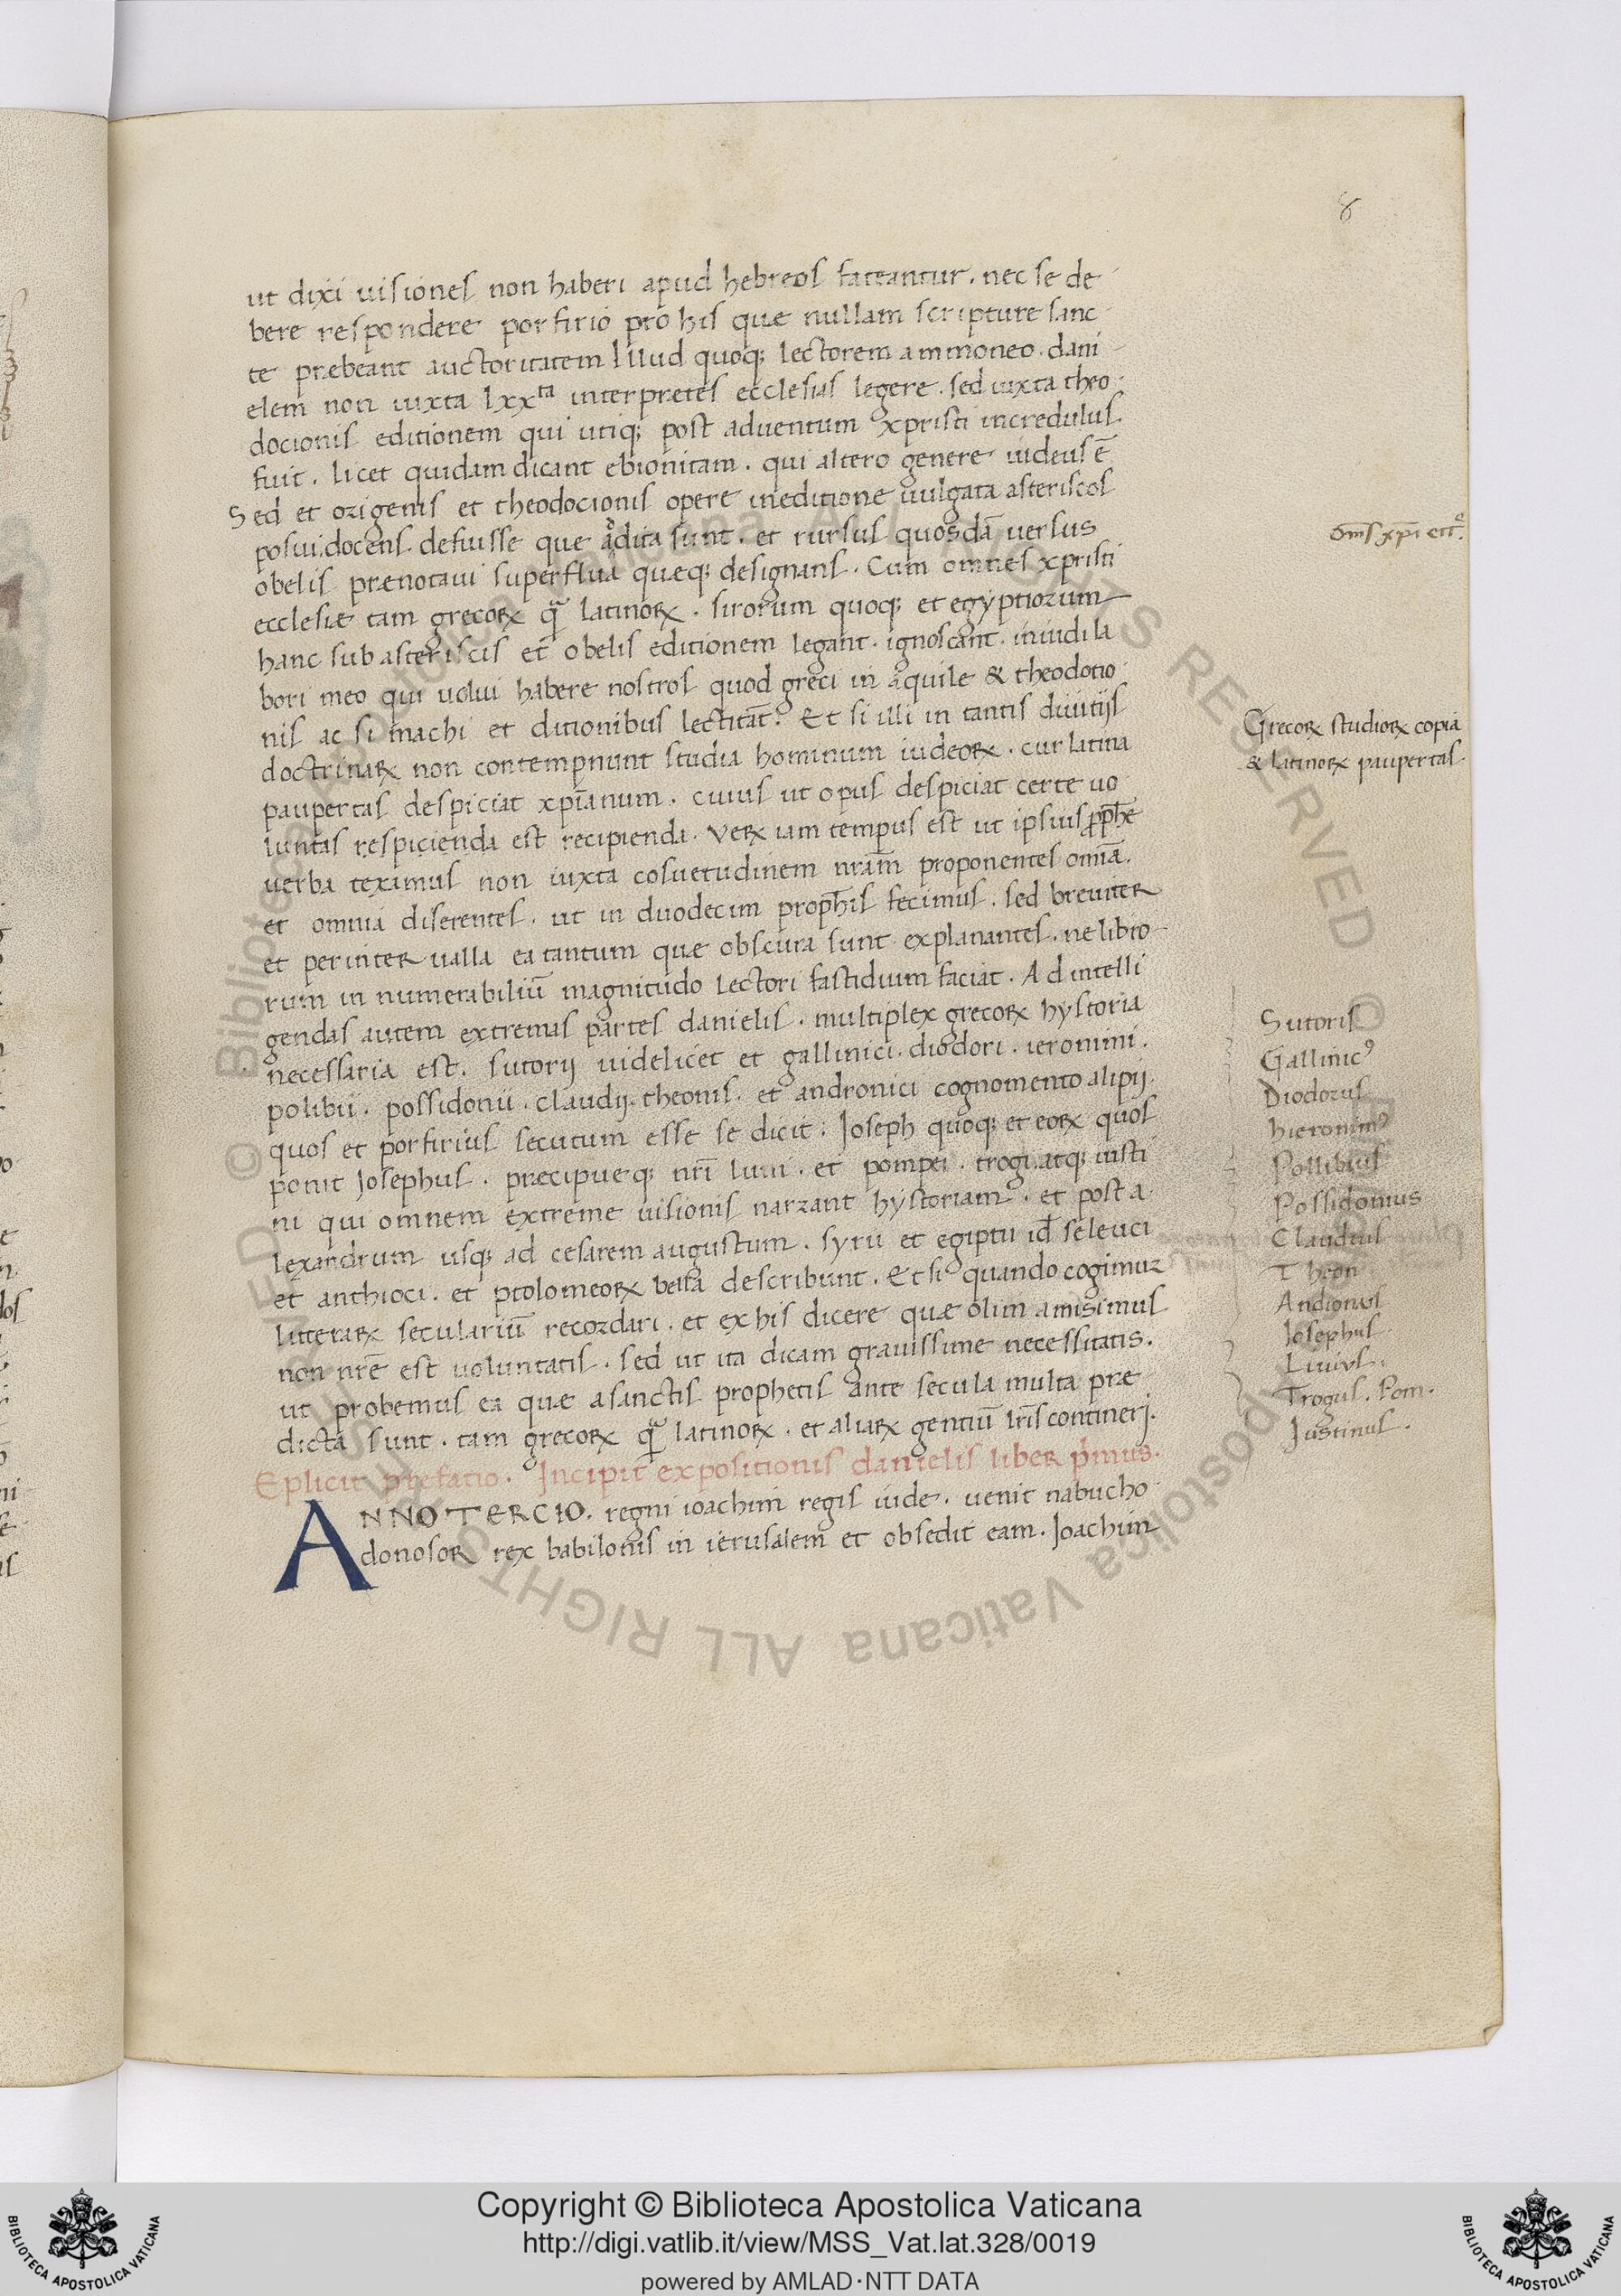 8
ut dixi uisiones non haberi apud hebreos fateantur . nec se de
bere respondere porfirio pro his quæ nullam scripture sanc
te præbeant auctoritatem Illud quoq; lectorem ammoneo . dani
elem non iuxta lxxta interpretes ecclesias legere . sed iuxta theo
docionis editionem qui utiq; post aduentum xpristi incredulus
fuit . licet quidam dicant ebionitam . qui altero genere iudeus ē
Sed et origenis et theodocionis opere in editione uulgata asteriscos
posui . docens defuisse que addita sunt . et rursus quosdā uersus
obelis prænotaui superflua quæq; designans . Cum omnes xpristi
ecclesiæ tam grecoꝝ quā latinoꝝ . sirorum quoq; et egyptiorum
hanc sub asteriscis et obelis editionem legant . ignoscant . inuidi la
bori meo qui uolui habere nostros quod greci in aquile & theodotio
nis ac simachi et ditionibus lectitāt . Et si illi in tantis diuitijs
doctrinaꝝ non contempnunt studia hominum iudeoꝝ . cur latina
paupertas despiciat xpīanum . cuius ut opus despiciat certe uo
luntas respicienda est recipienda . Veꝝ iam tempus est ut ipsius pphe
uerba texamus non iuxta cosuetudinem nram̄ proponentes omīa .
et omnia diserentes . ut in duodecim prophis fecimus . sed breuiter
et per inter ualla ea tantum quæ obscura sunt explanantes . ne libro
rum in numerabiliū magnitudo lectori fastidium faciat . Ad intelli
gendas autem extremas partes danielis . multiplex grecoꝝ hystoria
necessaria est . sutorij uidelicet et gallinici . diodori . ieronimi .
polibii . possidonii . claudij . theonis . et andronici cognomento alipij .
quos et porfirius secutum esse se dicit : Joseph quoq; et eoꝝ quos
ponit Josephus . præcipueq; nrī liuii . et pompei . trogi . atq; iusti
ni qui omnem extreme uisionis narrant hystoriam . et post a
lexandrum usq; ad cesarem augustum . syrii et egiptii id̄ seleuci
et anthioci . et ptolomeoꝝ bella describunt . Et si quando cogimur
litteraꝝ seculariū recordari . et ex his dicere quæ olim amisimus
non nrē est uoluntatis . sed ut ita dicam grauissime necessitatis .
ut probemus ea quæ a sanctis prophetis ante secula multa præ
dicta sunt . tam grecoꝝ quā latinoꝝ . et aliaꝝ gentiū lrīs contineri .
Eplicit prefatio . Incipit expositionis danielis liber pmus .
ANNO TERCIO . regni ioachim regis iude . uenit nabucho
donosor rex babilonis in ierusalem et obsedit eam . Joachim
Grecoꝝ studioꝝ copia
& latinoꝝ paupertas
Sutoris
Gallinic9
Diodorus
hieronim9
Pollibius
Possidonius
Claudius
Theon
Andionus
Josephus
Liuius .
Trogus . Pom .
Justinus .
© Biblioteca Apostolica Vaticana ALL RIGHTS RESERVED
Copyright © Biblioteca Apostolica Vaticana
http://digi.vatlib.it/view/MSS_Vat.lat.328/0019
powered by AMLAD·NTT DATA
BIBLIOTECA APOSTOLICA VATICANA
BIBLIOTECA APOSTOLICA VATICANA